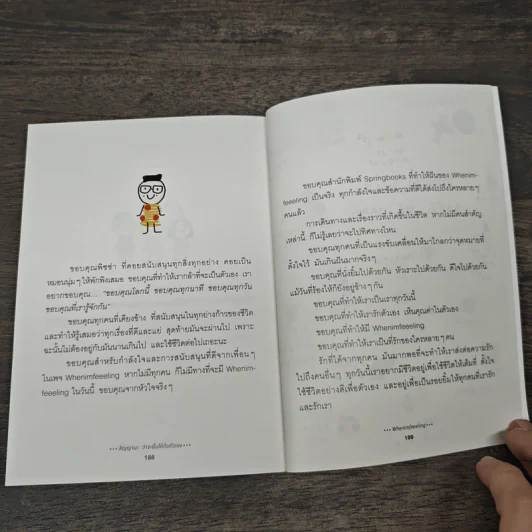 ขอบคุณพิซซ่า ที่คอยสนับสนุนทุกสิ่งทุกอย่าง คอยเป็น
หมอนนุ่มๆ ให้พักพิงเสมอ ขอบคุณที่ทำให้เรากล้าที่จะเป็นตัวเอง เรา
อยากขอบคุณ... “ขอบคุณโลกนี้ ขอบคุณทุกนาที ขอบคุณทุกวัน
ขอบคุณที่เรารู้จักกัน”
ขอบคุณทุกคนที่เคียงข้าง ที่สนับสนุนในทุกย่างก้าวของชีวิต
และทำให้รู้เสมอว่าทุกเรื่องที่ดีและแย่ สุดท้ายมันจะผ่านไป เพราะ
ฉะนั้นไม่ต้องอยู่กับมันนานเกินไป และใช้ชีวิตต่อไปเถอะนะ
ขอบคุณสำหรับกำลังใจและการสนับสนุนที่ดีจากเพื่อนๆ
ในเพจ Whenimfeeeling หากไม่มีทุกคน ก็ไม่มีทางที่จะมี Whenim-
feeeling ในวันนี้ ขอบคุณจากหัวใจจริงๆ
••• สัญญานะ ว่าจะยิ้มให้กับตัวเอง •••
188
ขอบคุณสำนักพิมพ์ Springbooks ที่ทำให้ฝันของ Whenim-
feeeling เป็นจริง ทุกกำลังใจและข้อความที่ดีได้ส่งไปถึงใครหลายๆ
คนแล้ว
การเดินทางและเรื่องราวที่เกิดขึ้นในชีวิต หากไม่มีคนสำคัญ
เหล่านี้ ก็ไม่รู้เลยว่าจะไปทิศทางไหน
ขอบคุณทุกคนที่เป็นแรงขับเคลื่อนให้มาไกลกว่าจุดหมายที่
ตั้งใจไว้ มันเกินฝันมากจริงๆ
ขอบคุณที่นั่งยิ้มไปด้วยกัน หัวเราะไปด้วยกัน ดีใจไปด้วยกัน
แม้วันที่ร้องไห้ก็ยังอยู่ข้างๆ กัน
ขอบคุณที่ทำให้เราเป็นเราทุกวันนี้
ขอบคุณที่ทำให้เรารักตัวเอง เห็นคุณค่าในตัวเอง
ขอบคุณที่ทำให้มี Whenimfeeeling
ขอบคุณที่ทำให้เราเป็นที่รักของใครหลายๆ คน
รักที่ได้จากทุกคน มันมากพอที่จะทำให้เราส่งต่อความรัก
ไปถึงคนอื่นๆ ทุกวันนี้เราอยากมีชีวิตอยู่เพื่อใช้ชีวิตให้เต็มที่ ตั้งใจ
ใช้ชีวิตอย่างดีเพื่อตัวเอง และอยู่เพื่อเป็นรอยยิ้มให้ทุกคนที่เรารัก
และรักเรา
••• Whenimfeeeling •••
189